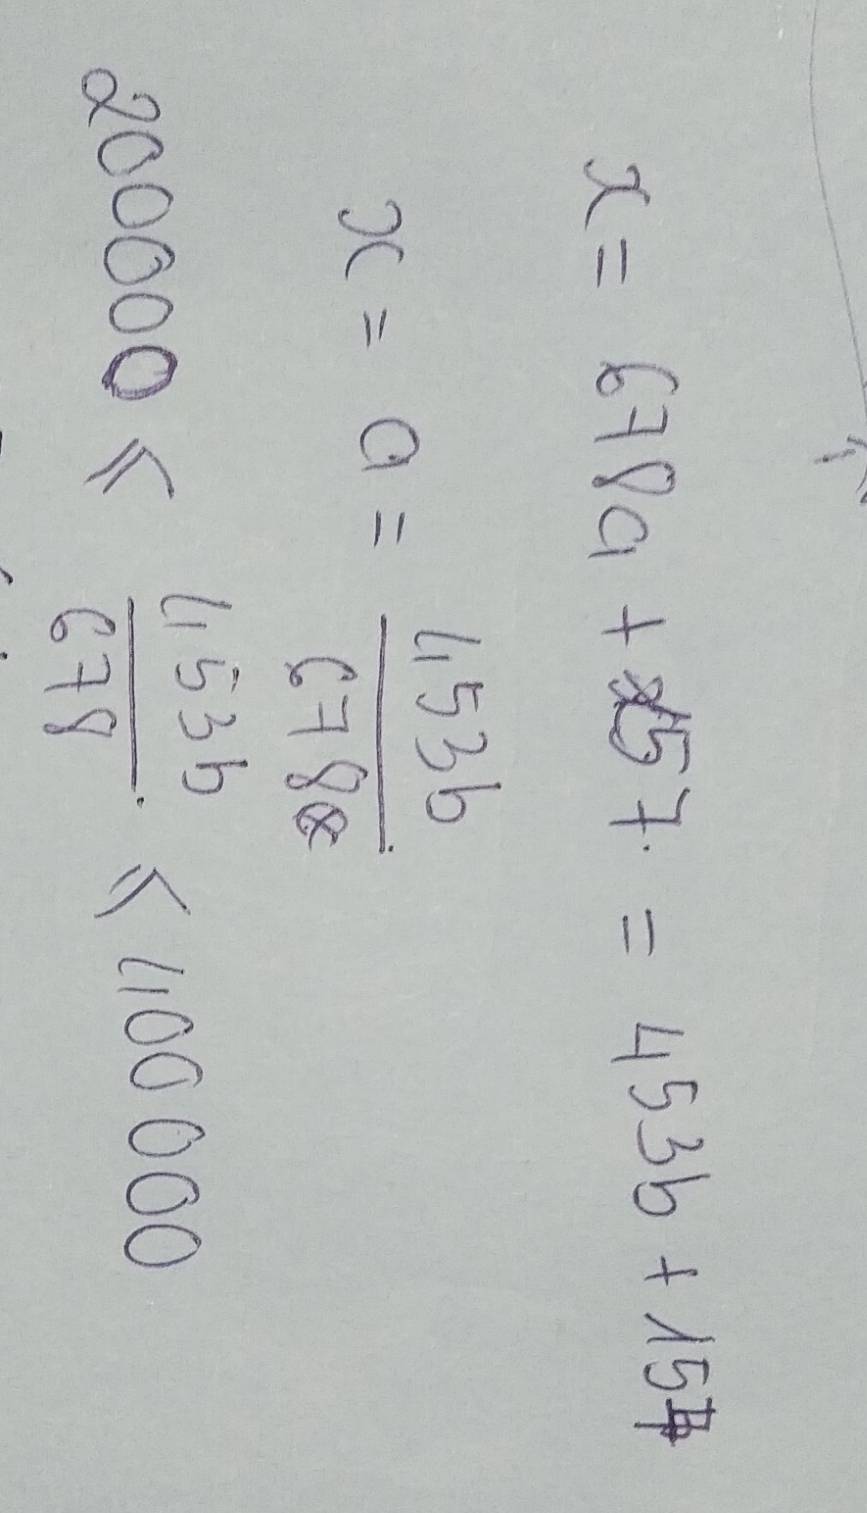 x = 678a + 157. = 453b + 157
x = a = 453b / 678
200000 ≤ 453b / 678 . ≤ 400000